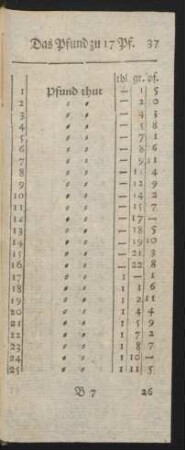 Das Pfund zu 17 Pf. 37
thl. gr. pf.
1 Pfund thut — 1 5
2 〃 〃 — 2 10
3 〃 〃 — 4 3
4 〃 〃 — 5 8
5 〃 〃 — 7 1
6 〃 〃 — 8 6
7 〃 〃 — 9 11
8 〃 〃 — 11 4
9 〃 〃 — 12 9
10 〃 〃 — 14 2
11 〃 〃 — 15 7
12 〃 〃 — 17 —
13 〃 〃 — 18 5
14 〃 〃 — 19 10
15 〃 〃 — 21 3
16 〃 〃 — 22 8
17 〃 〃 1 — 1
18 〃 〃 1 1 6
19 〃 〃 1 2 11
20 〃 〃 1 4 4
21 〃 〃 1 5 9
22 〃 〃 1 7 2
23 〃 〃 1 8 7
24 〃 〃 1 10 —
25 〃 〃 1 11 5
B 7 26